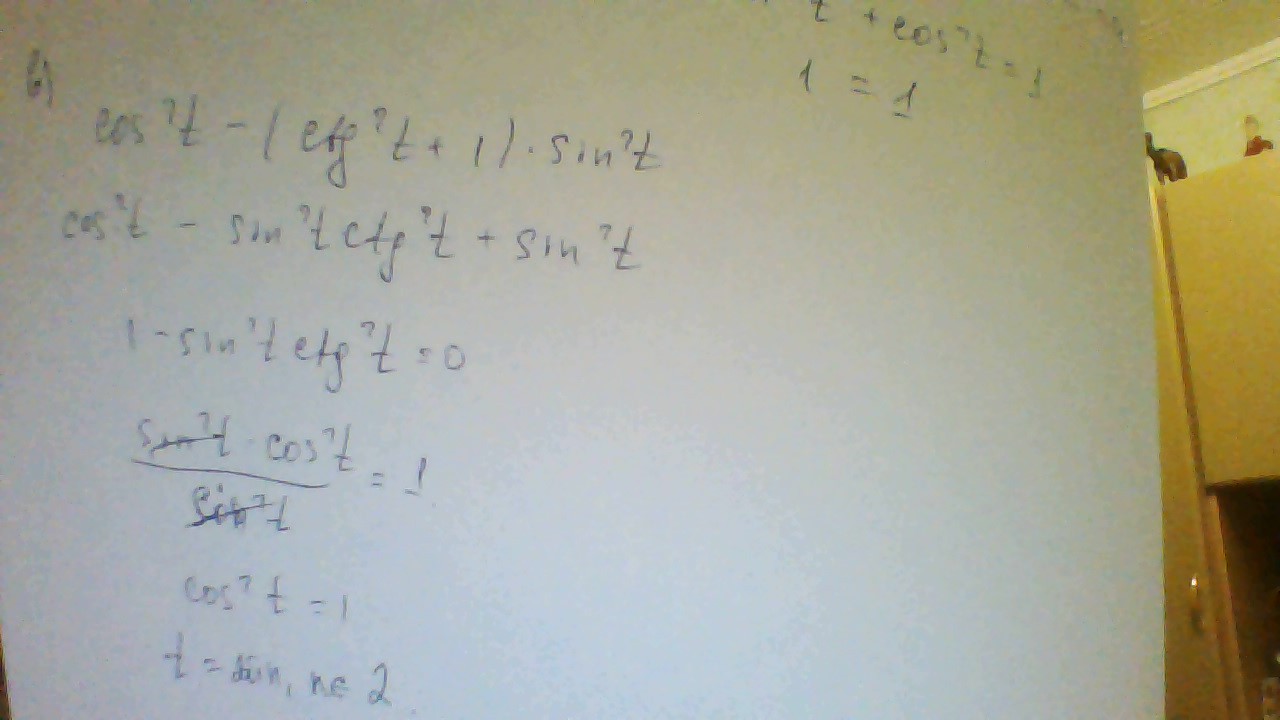 t + cos²t = 1
1 = 1
в)
cos²t - (ctg²t + 1) · sin²t
cos²t - sin²t ctg²t + sin²t
1 - sin²t ctg²t = 0
sin²t · cos²t
= 1
sin²t
cos²t = 1
t = n, n ∈ Z